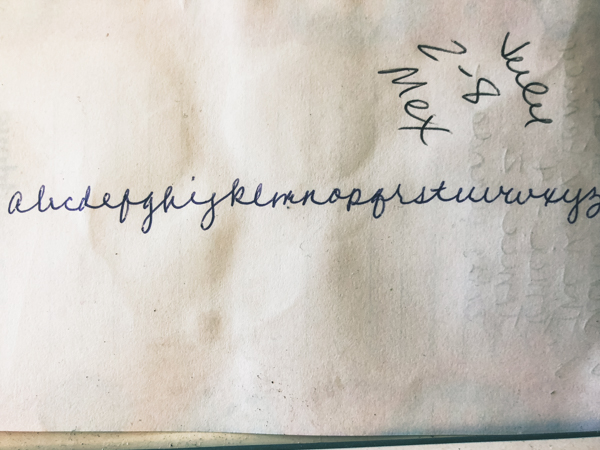 2-8
Mex
abcdefghijklmnopqrstuvwxyz